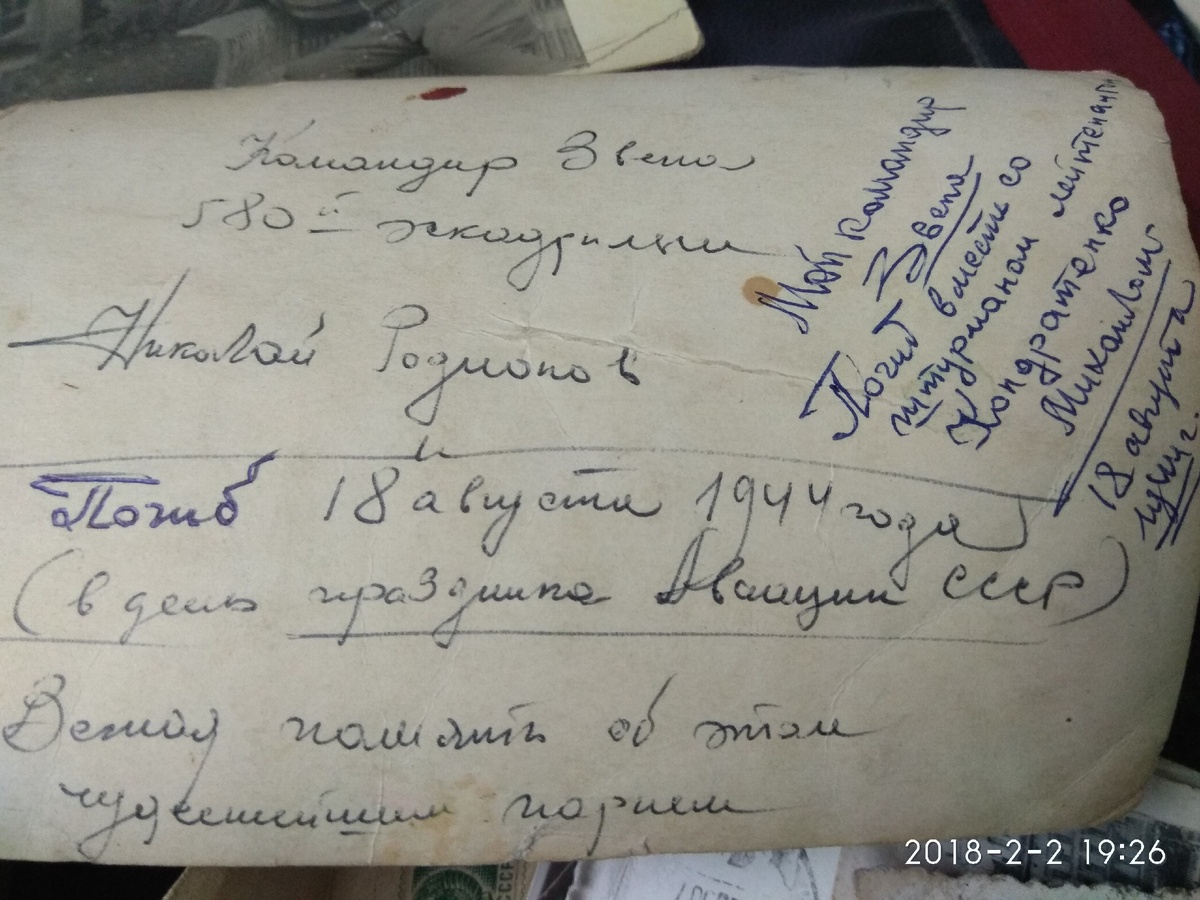 Командир Звена
580й эскадрильи
Николай Родионов
Погиб 18 августа 1944 года
(в день праздника Авиации СССР)
Вечная память об этом
чудеснейшим парнем
Мой командир
Звена
Погиб вместе со
штурманом лейтенантом
Кондратенко
Михаилом
18 августа
1944 г.
СССР
2018-2-2 19:26